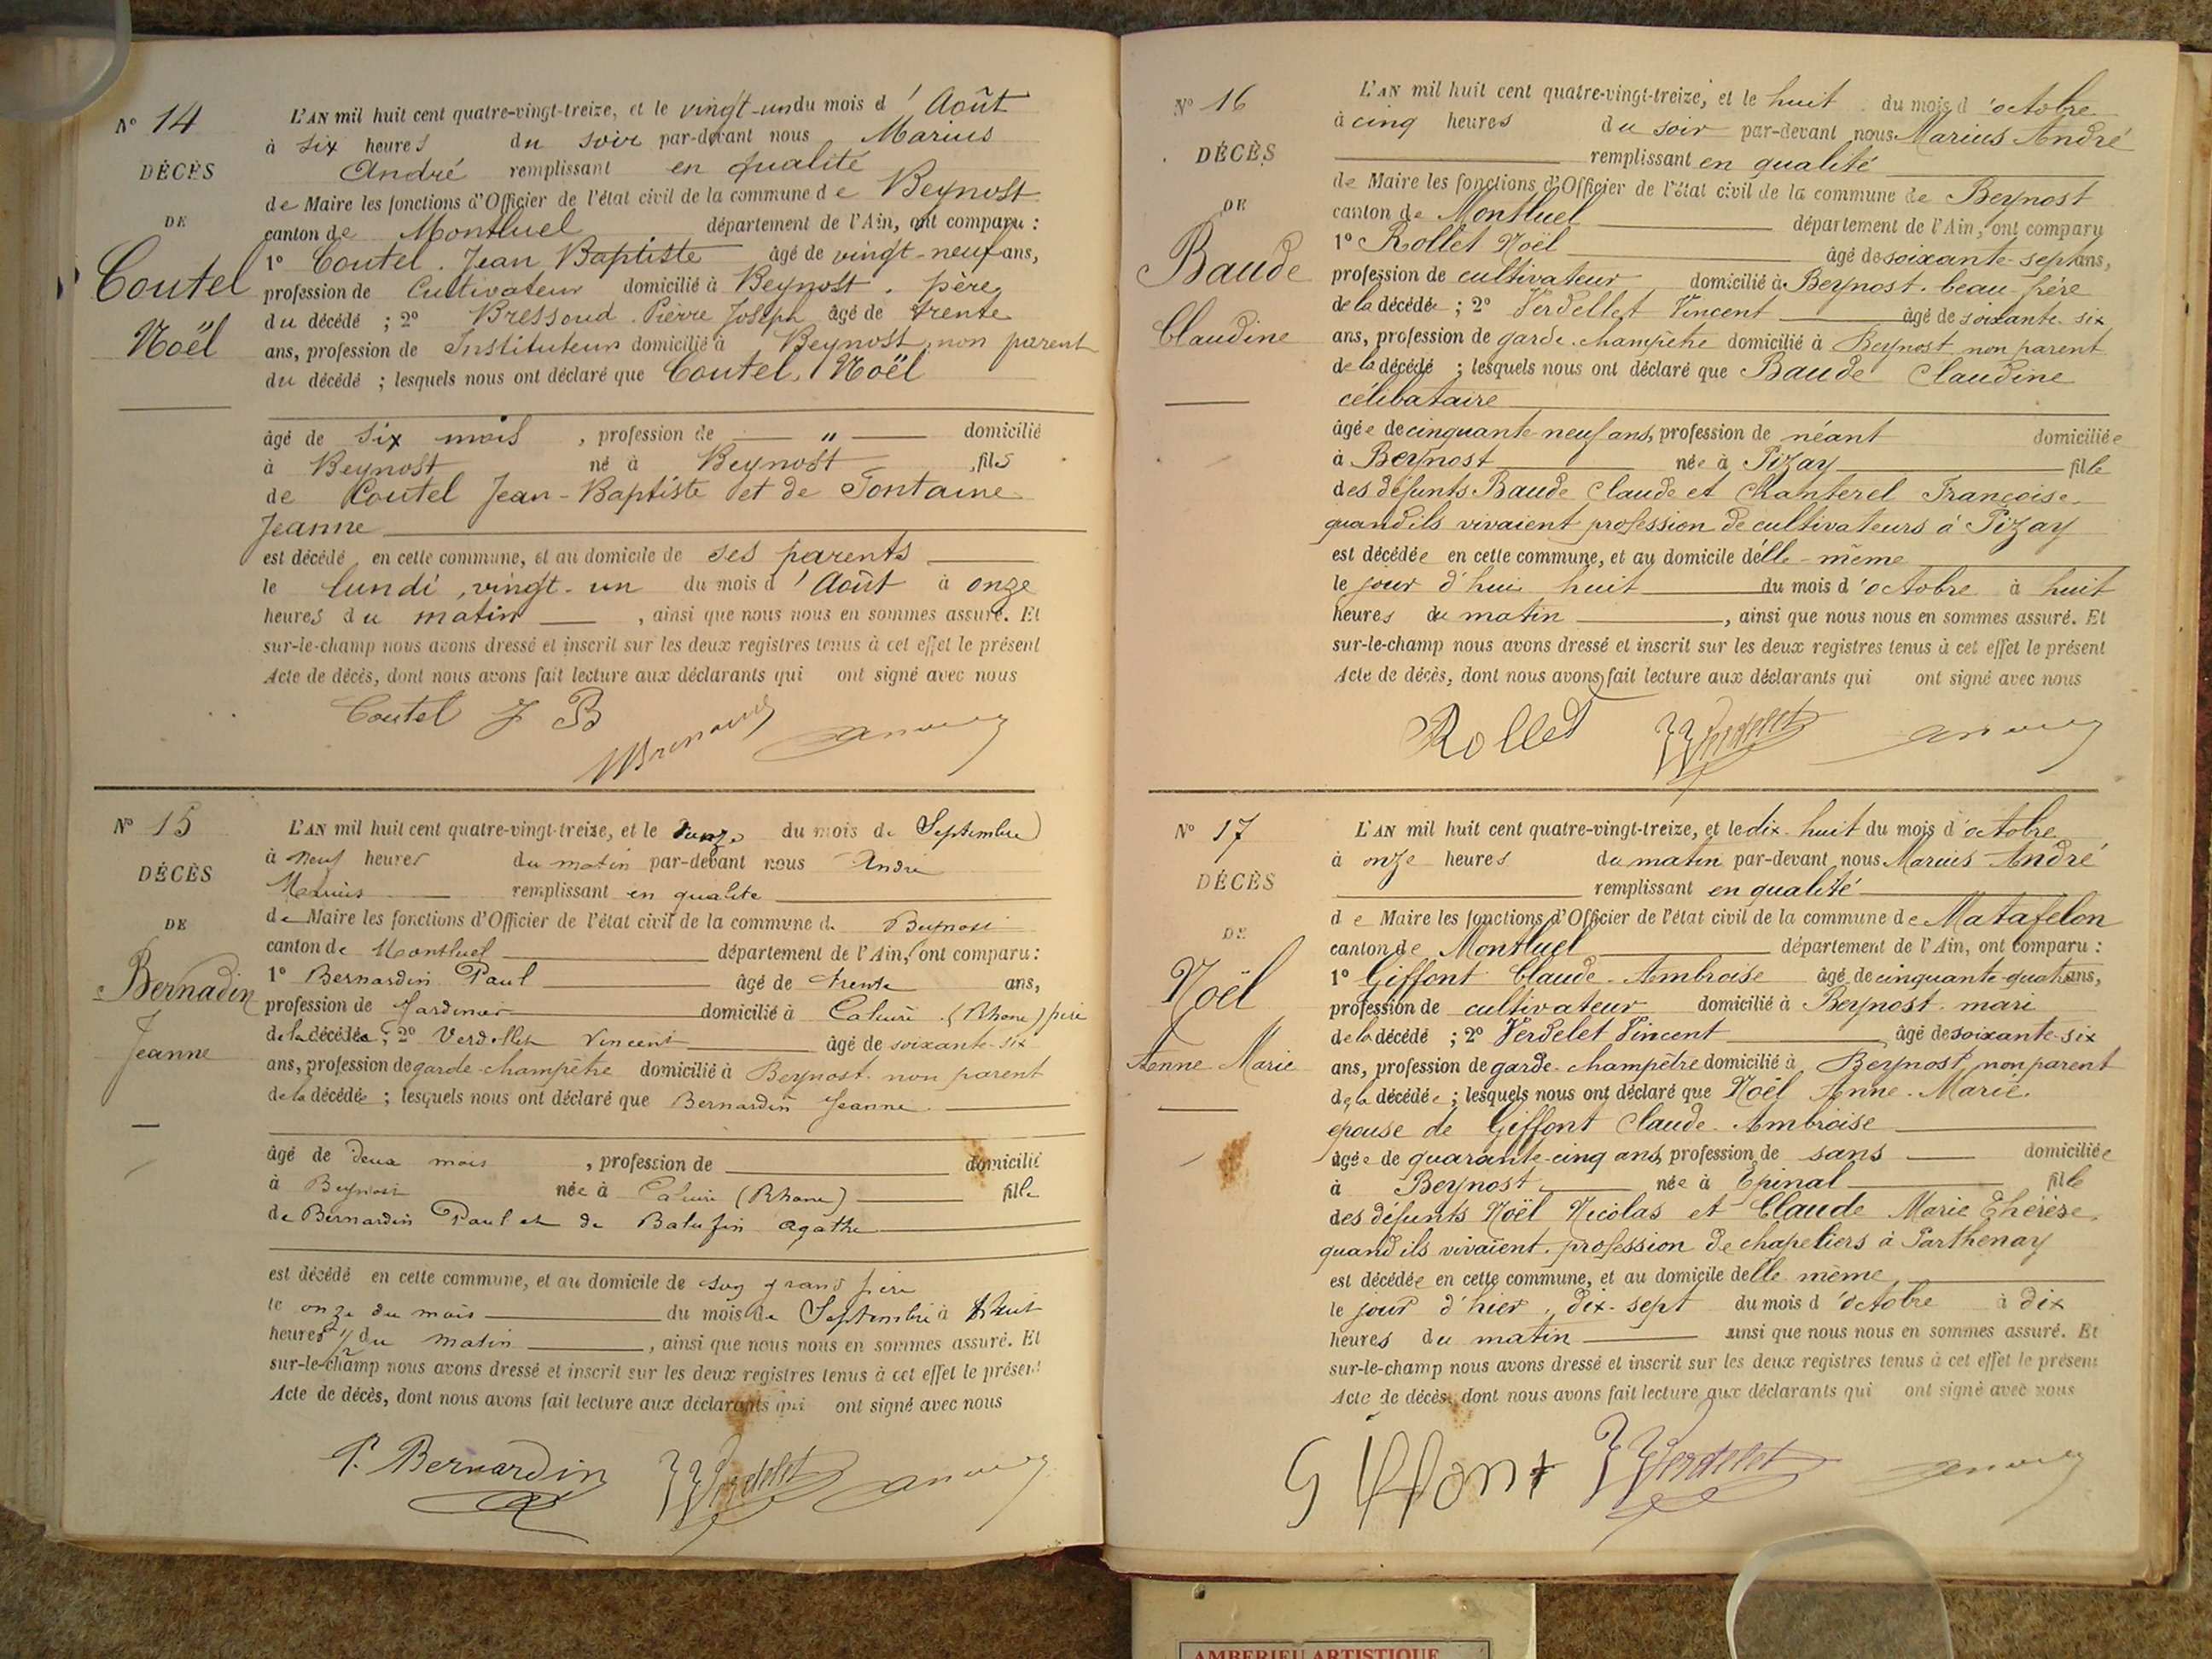 N° 14
DÉCÈS
DE
Coutel
Noël
L'AN mil huit cent quatre-vingt-treize, et le vingt-un du mois d'Août
à six heures du soir par-devant nous Marius
André remplissant en qualité
de Maire les fonctions d'Officier de l'état civil de la commune de Beynost
canton de Montluel département de l'Ain, ont comparu :
1° Coutel Jean Baptiste âgé de vingt-neuf ans,
profession de Cultivateur domicilié à Beynost. père
du décédé ; 2° Bressoud Pierre Joseph âgé de trente
ans, profession de Instituteur domicilié à Beynost non parent
du décédé ; lesquels nous ont déclaré que Coutel Noël
âgé de six mois , profession de " domicilié
à Beynost né à Beynost fils
de Coutel Jean-Baptiste et de Fontaine
Jeanne
est décédé en cette commune, et au domicile de ses parents
le lundi, vingt-un du mois d'Août à onze
heures du matin , ainsi que nous nous en sommes assuré. Et
sur-le-champ nous avons dressé et inscrit sur les deux registres tenus à cet effet le présent
Acte de décès, dont nous avons fait lecture aux déclarants qui ont signé avec nous
Coutel J B
N° 15
DÉCÈS
DE
Bernadin
Jeanne
L'AN mil huit cent quatre-vingt-treize, et le onze du mois de Septembre
à neuf heures du matin par-devant nous André
Marius remplissant en qualité
de Maire les fonctions d'Officier de l'état civil de la commune de Beynost
canton de Montluel département de l'Ain, ont comparu :
1° Bernardin Paul âgé de trente ans,
profession de Jardinier domicilié à Caluire (Rhone) père
de la décédée ; 2° Verdellet Vincent âgé de soixante-six
ans, profession de garde-champêtre domicilié à Beynost. non parent
de la décédée ; lesquels nous ont déclaré que Bernardin Jeanne
âgé de deux mois , profession de domicilié
à Beynost née à Caluire (Rhone) fille
de Bernardin Paul et de Agathe
est décédé en cette commune, et au domicile de son grand père
le onze du mois du mois de Septembre à huit
heures 1/2 du matin , ainsi que nous nous en sommes assuré. Et
sur-le-champ nous avons dressé et inscrit sur les deux registres tenus à cet effet le présent
Acte de décès, dont nous avons fait lecture aux déclarants qui ont signé avec nous
P. Bernardin VVerdelet
N° 16
DÉCÈS
DE
Baude
Claudine
L'AN mil huit cent quatre-vingt-treize, et le huit du mois d'octobre
à cinq heures du soir par-devant nous Marius André
remplissant en qualité
de Maire les fonctions d'Officier de l'état civil de la commune de Beynost
canton de Montluel département de l'Ain, ont comparu
1° Rollet Noël âgé de soixante-sept ans,
profession de cultivateur domicilié à Beynost. beau-père
de la décédée ; 2° Verdellet Vincent âgé de soixante-six
ans, profession de garde-champêtre domicilié à Beynost non parent
de la décédé ; lesquels nous ont déclaré que Baude Claudine
célibataire
âgée de cinquante-neuf ans, profession de néant domiciliée
à Beynost née à Pizay fille
des défunts Baude Claude et Chanterel Françoise
quand ils vivaient profession de cultivateurs à Pizay
est décédée en cette commune, et au domicile d'elle-même
le jour d'hui huit du mois d'octobre à huit
heures du matin , ainsi que nous nous en sommes assuré. Et
sur-le-champ nous avons dressé et inscrit sur les deux registres tenus à cet effet le présent
Acte de décès, dont nous avons fait lecture aux déclarants qui ont signé avec nous
Rollet VVerdelet
N° 17
DÉCÈS
DE
Noël
Anne Marie
L'AN mil huit cent quatre-vingt-treize, et le dix-huit du mois d'octobre
à onze heures du matin par-devant nous Marius André
remplissant en qualité
de Maire les fonctions d'Officier de l'état civil de la commune de Matafelon
canton de Montluel département de l'Ain, ont comparu :
1° Giffont Claude-Ambroise âgé de cinquante-quat ans,
profession de cultivateur domicilié à Beynost. mari
de la décédé ; 2° Verdelet Vincent âgé de soixante-six
ans, profession de garde-champêtre domicilié à Beynost, non parent
de la décédée ; lesquels nous ont déclaré que Noël Anne-Marie
epouse de Giffont Claude-Ambroise
âgée de quarante-cinq ans, profession de sans domiciliée
à Beynost née à Epinal fille
des défunts Noël Nicolas et Claude Marie Thérèse,
quand ils vivaient, profession de chapeliers à Parthenay
est décédée en cette commune, et au domicile d'elle même,
le jour d'hier, dix-sept du mois d'octobre à dix
heures du matin ainsi que nous nous en sommes assuré. Et
sur-le-champ nous avons dressé et inscrit sur les deux registres tenus à cet effet le présent
Acte de décès, dont nous avons fait lecture aux déclarants qui ont signé avec nous
Giffont VVerdelet
AMBERIEU ARTISTIQUE